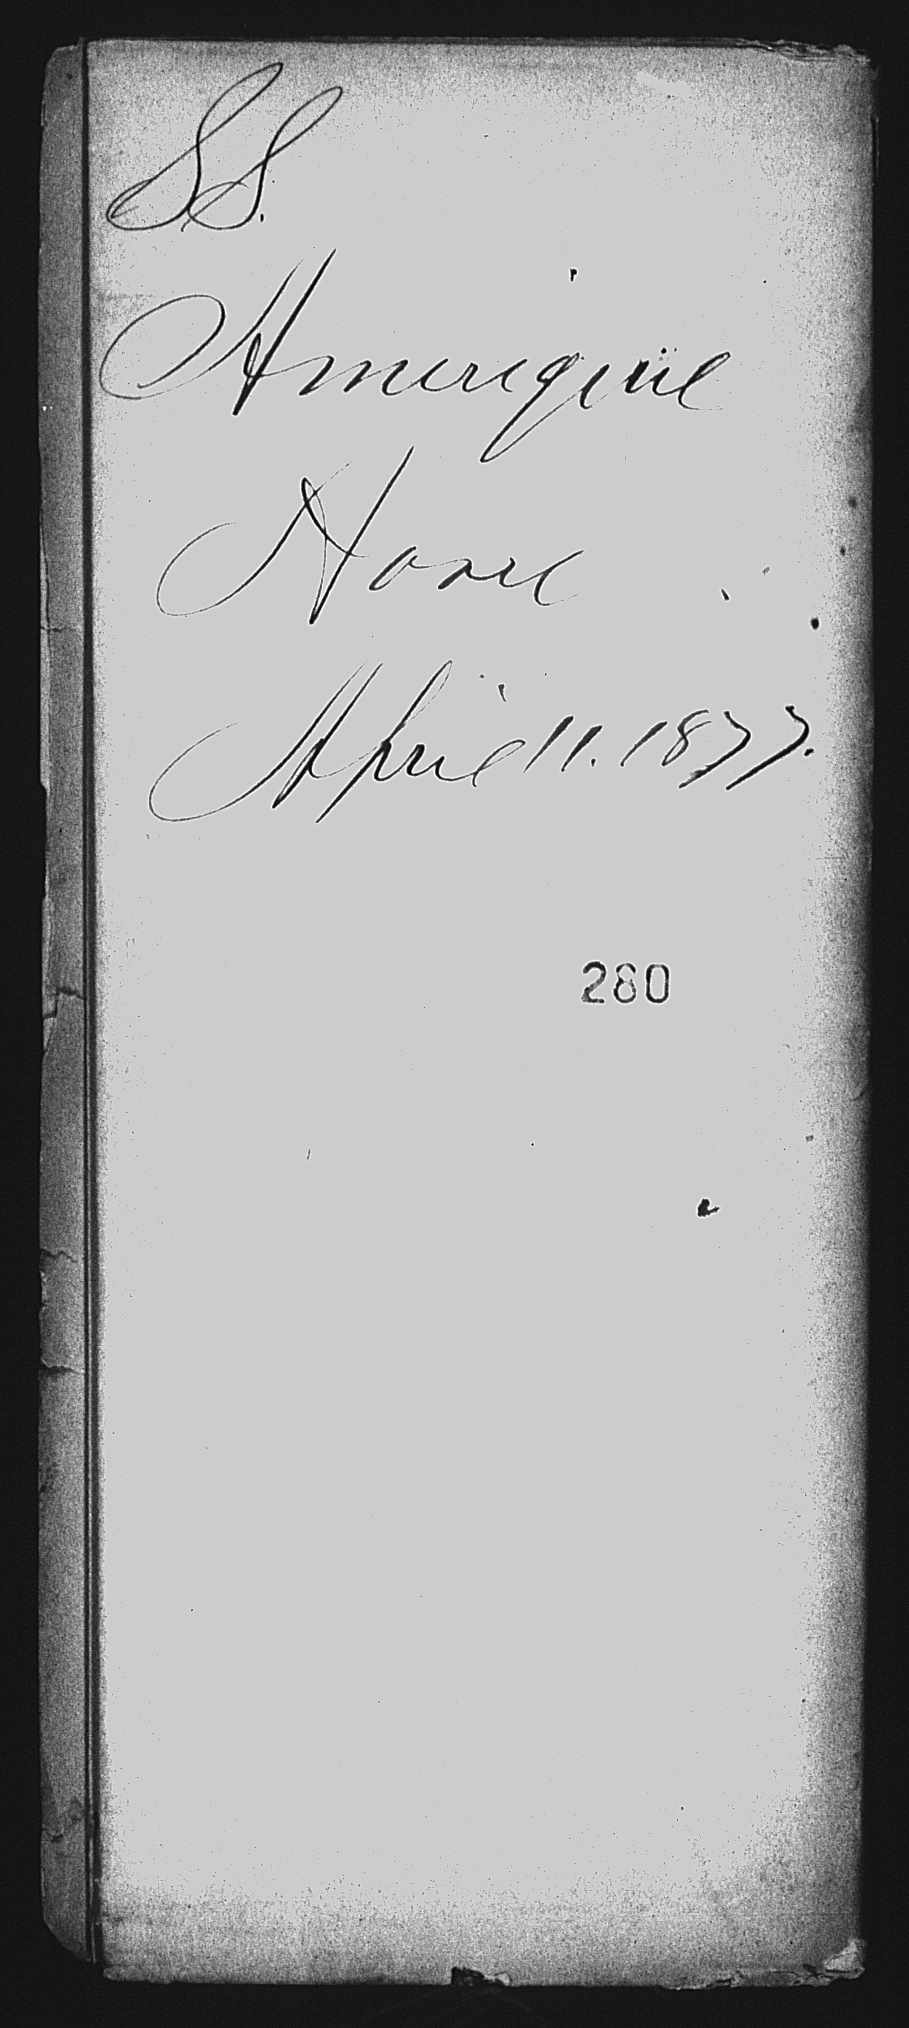 S.S.
Amerique
Havre
April 11. 1877.
280